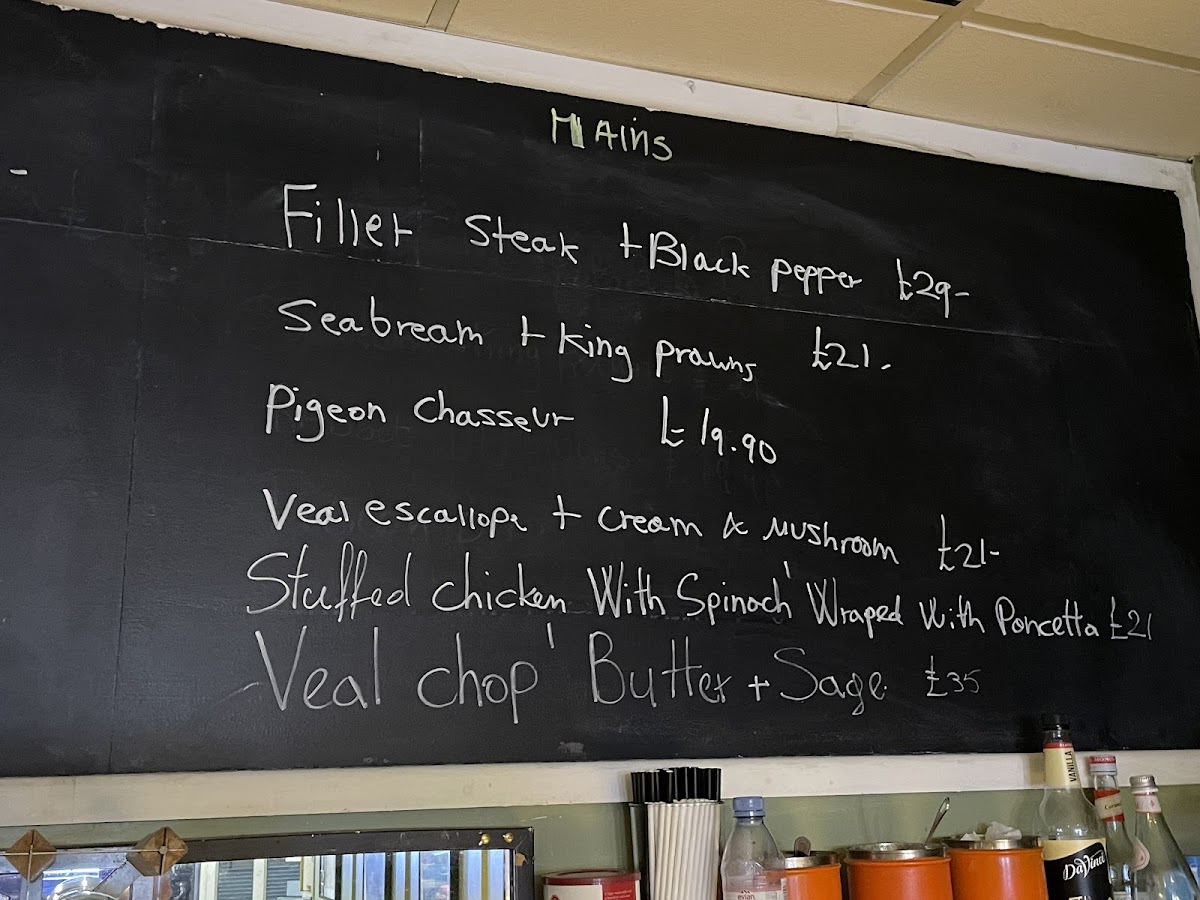 MAins
Fillet Steak + Black pepper £29-
Seabream + King prawns £21.
Pigeon Chasseur £19.90
Veal escallope + cream & Mushroom £21-
Stuffed chicken With Spinach' Wraped With Poncetta £21
Veal chop' Butter + Sage £35
VANILLA
DaVinci
evian